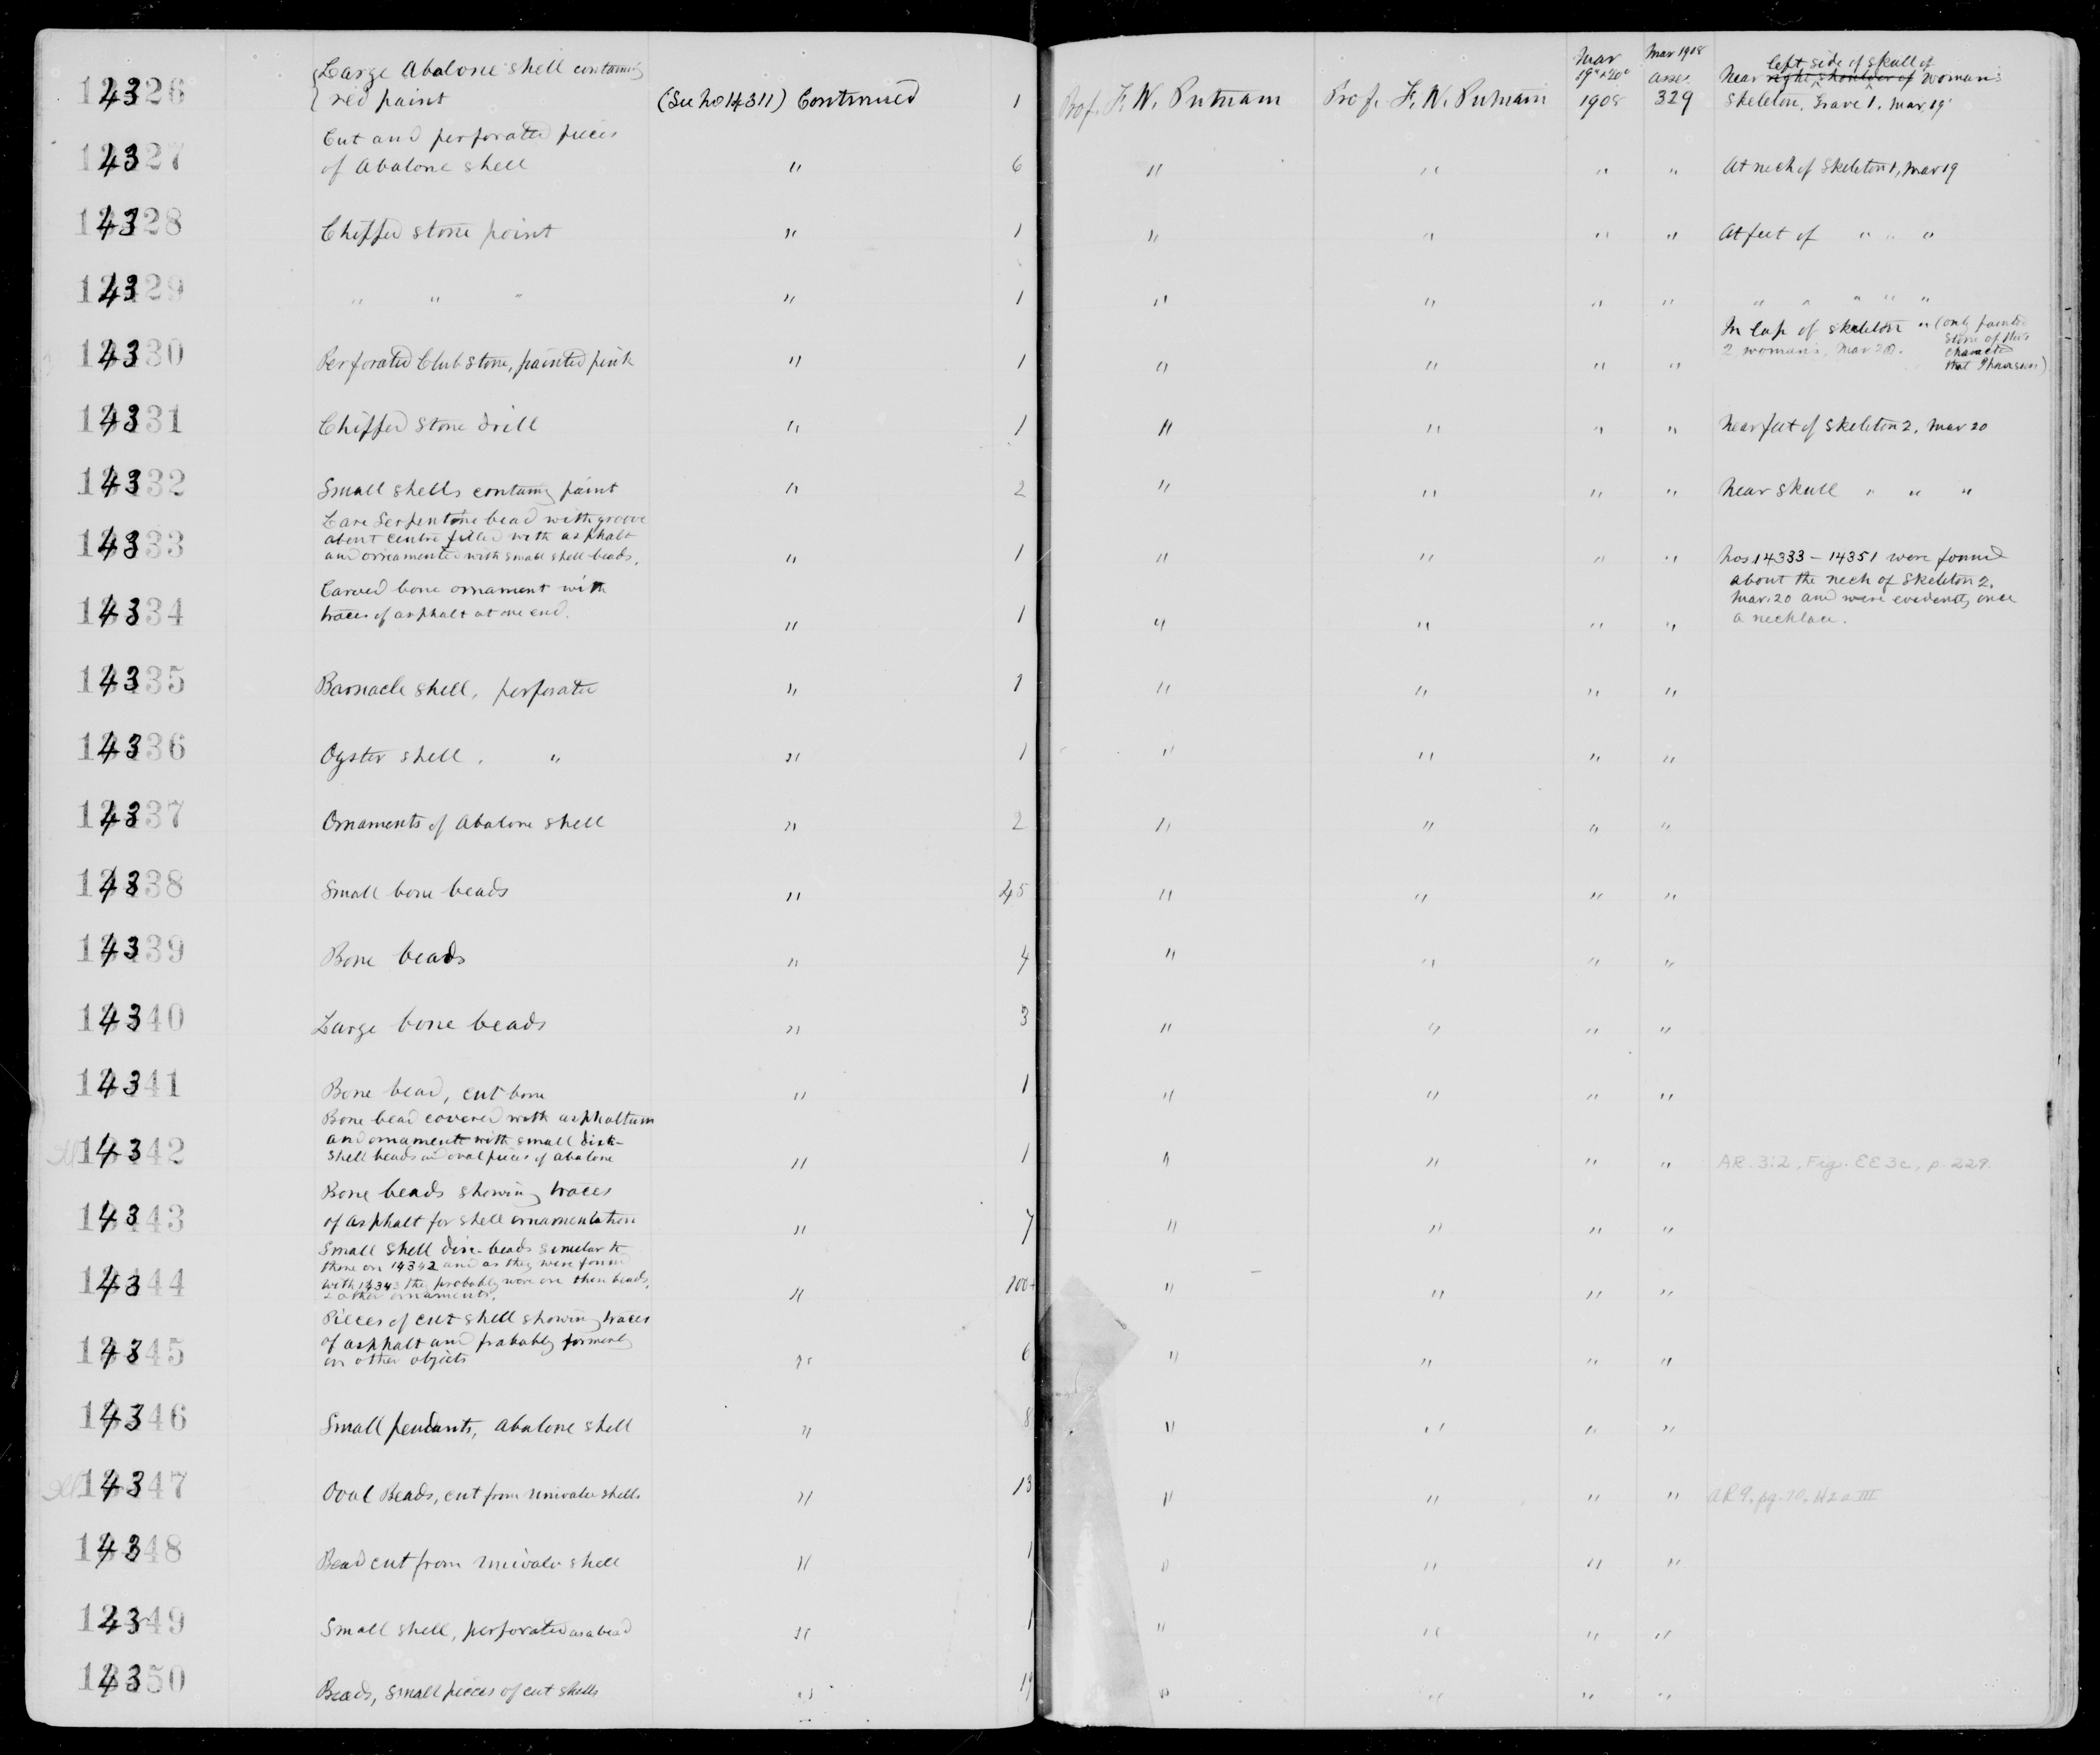 14326 Large Abalone shell containing
red paint (See No 14311) Continued 1 Prof. F. W. Putnam Prof. F. W. Putnam Mar 19" & 20" 1908 Mar 1908 329 Near right shoulder of left side of skull of woman's
skeleton, Grave 1. Mar 19
14327 Cut and perforated pieces
of Abalone shell " 6 " " " " At neck of Skeleton 1, Mar 19
14328 Chipped stone point " 1 " " " " At feet of " " "
14329 " " " " 1 " " " " " " " " "
14330 Perforated Club stone, painted pink " 1 " " " " In lap of skeleton " (only painted
2 woman's, Mar 20. stone of this
character
that I have seen)
14331 Chipped Stone drill " 1 " " " " Near feet of skeleton 2, Mar 20
14332 Small shells containing paint " 2 " " " " Near skull " " "
14333 Serpentine bead with groove
about centre filled with asphalt
and ornamented with small shell beads. " 1 " " " " Nos 14333 – 14351 were found
about the neck of Skeleton 2.
Mar. 20 and were evidently once
a necklace.
14334 Carved bone ornament with
traces of asphalt at one end. " 1 " " " "
14335 Barnacle shell, perforated " 1 " " " "
14336 Oyster shell, " " 1 " " " "
14337 Ornaments of Abalone shell " 2 " " " "
14338 Small bone beads " 45 " " " "
14339 Bone beads " 4 " " " "
14340 Large bone beads " 3 " " " "
14341 Bone bead, cut bone " 1 " " " "
14342 Bone bead covered with asphaltum
and ornamented with small disk-
shell beads and oval pieces of abalone " 1 " " " " AR. 3:2, Fig. EE3c, p. 229.
14343 Bone beads showing traces
of asphalt for shell ornamentation " 7 " " " "
14344 Small shell disc-beads similar to
those on 14342 and as they were found
with 14343 they probably were on these beads,
& other ornaments. " 100+ " " " "
14345 Pieces of cut shell showing traces
of asphalt and probably formerly
on other objects " 6 " " " "
14346 Small pendants, Abalone shell " 8 " " " "
14347 Oval Beads, cut from univalve shells " 13 " " " " AR 9, pg. 70,
14348 Bead cut from univalve shell " 1 " " " "
14349 Small shell, perforated as a bead " 1 " " " "
14350 Beads, small pieces of cut shells " " " " "